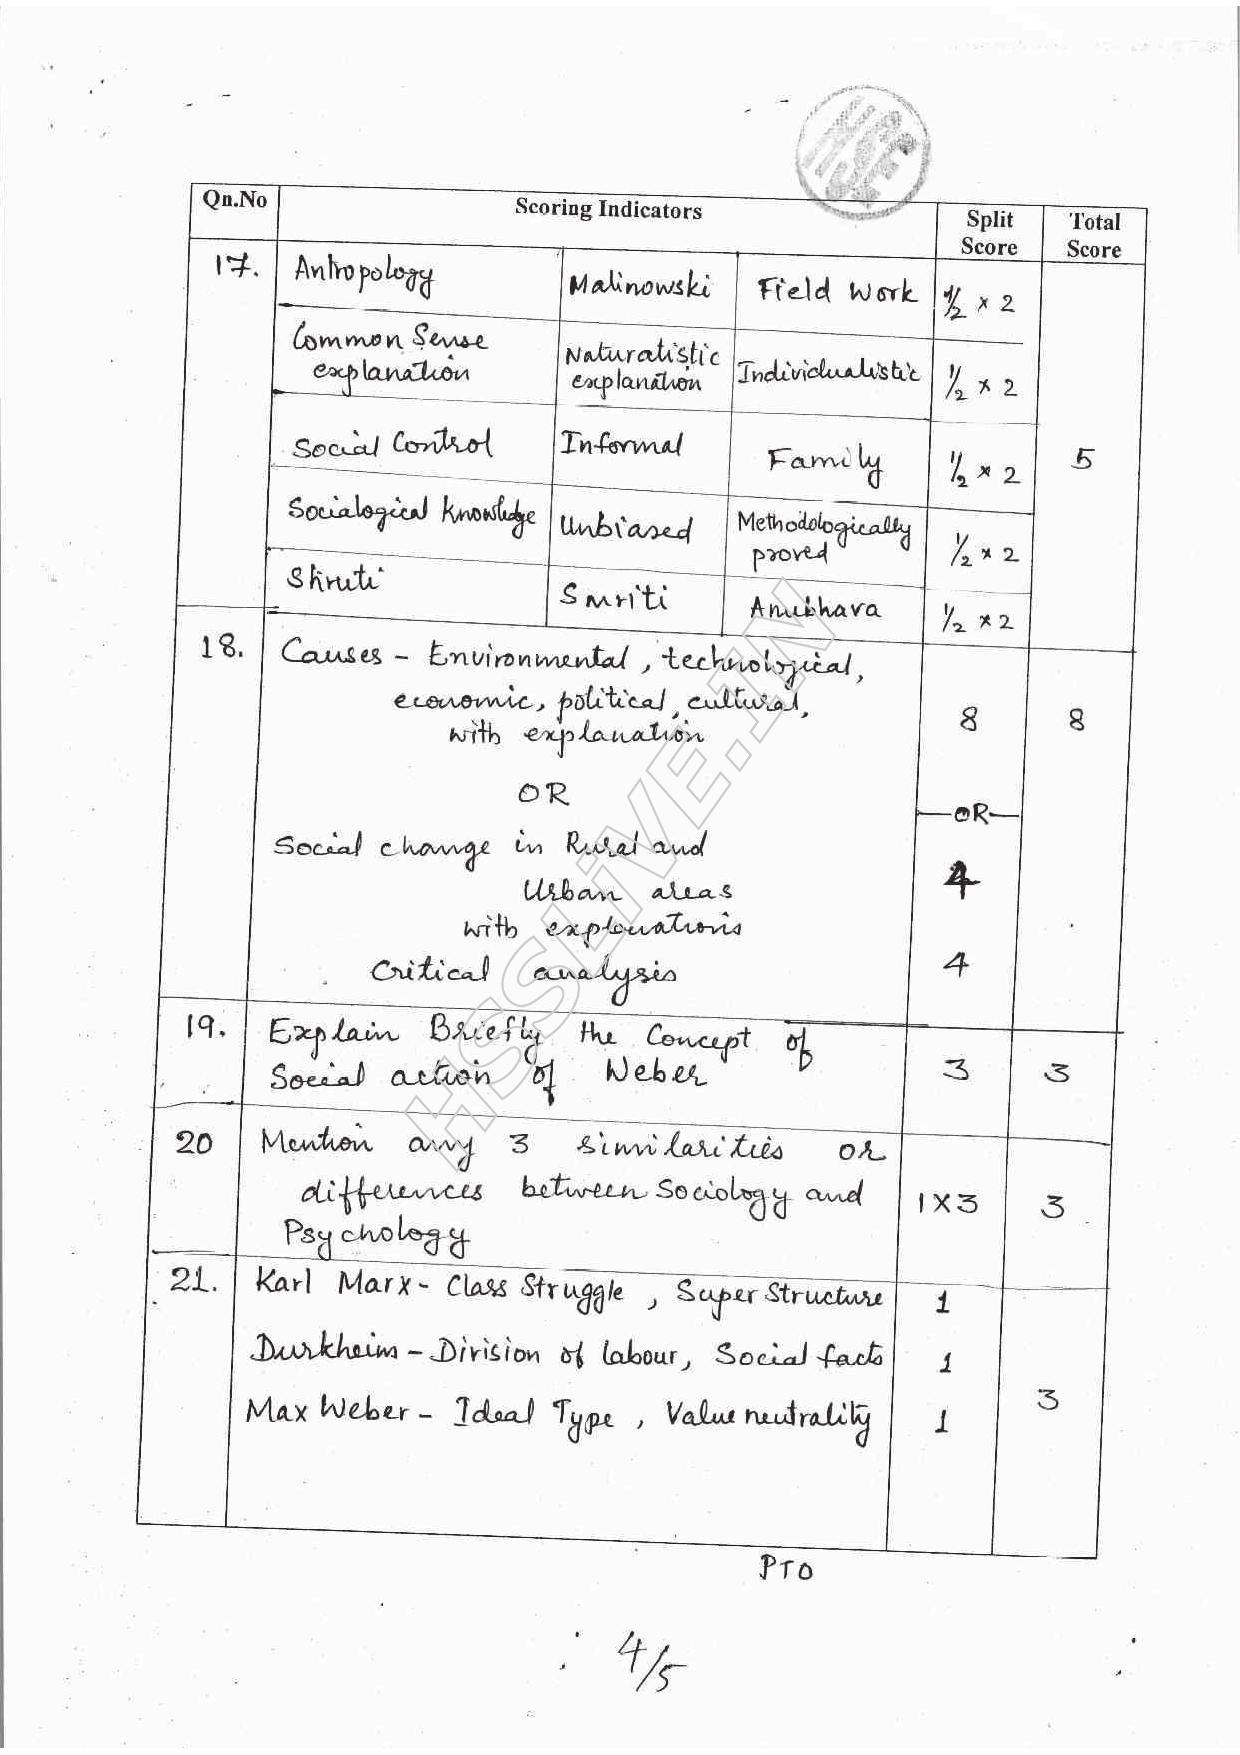 HSE
Qn.No Scoring Indicators Split Score Total Score
17. Antropology Malinowski Field Work 1/2 × 2
Common Sense explanation Naturalistic explanation Individualistic 1/2 × 2
Social Control Informal Family 1/2 × 2 5
Socialogical Knowledge Unbiased Methodologically proved 1/2 × 2
Shruti Smriti Anubhava 1/2 × 2
18. Causes - Environmental, technological,
economic, political, cultural,
with explanation 8 8
OR —OR—
Social change in Rural and
Urban areas 4
with explanations
Critical analysis 4
19. Explain Briefly the Concept of
Social action of Weber 3 3
20 Mention any 3 similarities or
differences between Sociology and 1X3 3
Psychology
21. Karl Marx - Class Struggle, Super Structure 1
Durkheim - Division of labour, Social facts 1
Max Weber - Ideal Type, Value neutrality 1 3
PTO
4/5
HSSLiVE.IN